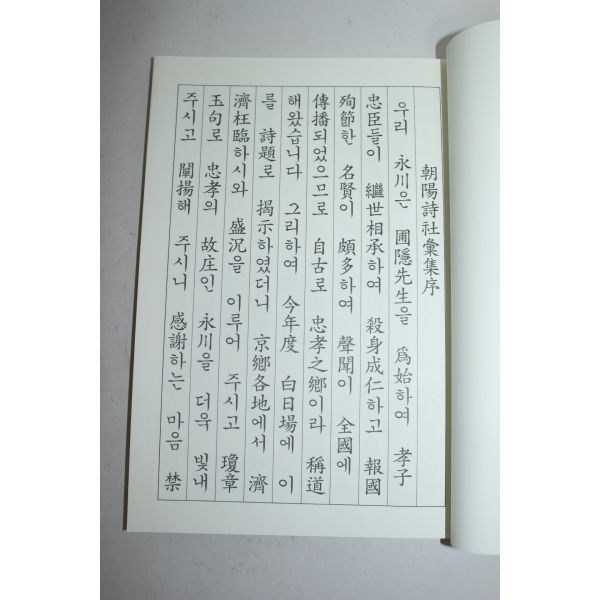 朝陽詩社彙集序
우리 永川은 圃隱先生을 爲始하여 孝子
忠臣들이 繼世相承하여 殺身成仁하고 報國
殉節한 名賢이 頗多하여 聲聞이 全國에
傳播되었으므로 自古로 忠孝之鄕이라 稱道
해왔습니다 그리하여 今年度 白日場에 이
를 詩題로 揭示하였더니 京鄕各地에서 濟
濟枉臨하시와 盛況을 이루어 주시고 瓊章
玉句로 忠孝의 故庄인 永川을 더욱 빛내
주시고 闡揚해 주시니 感謝하는 마음 禁